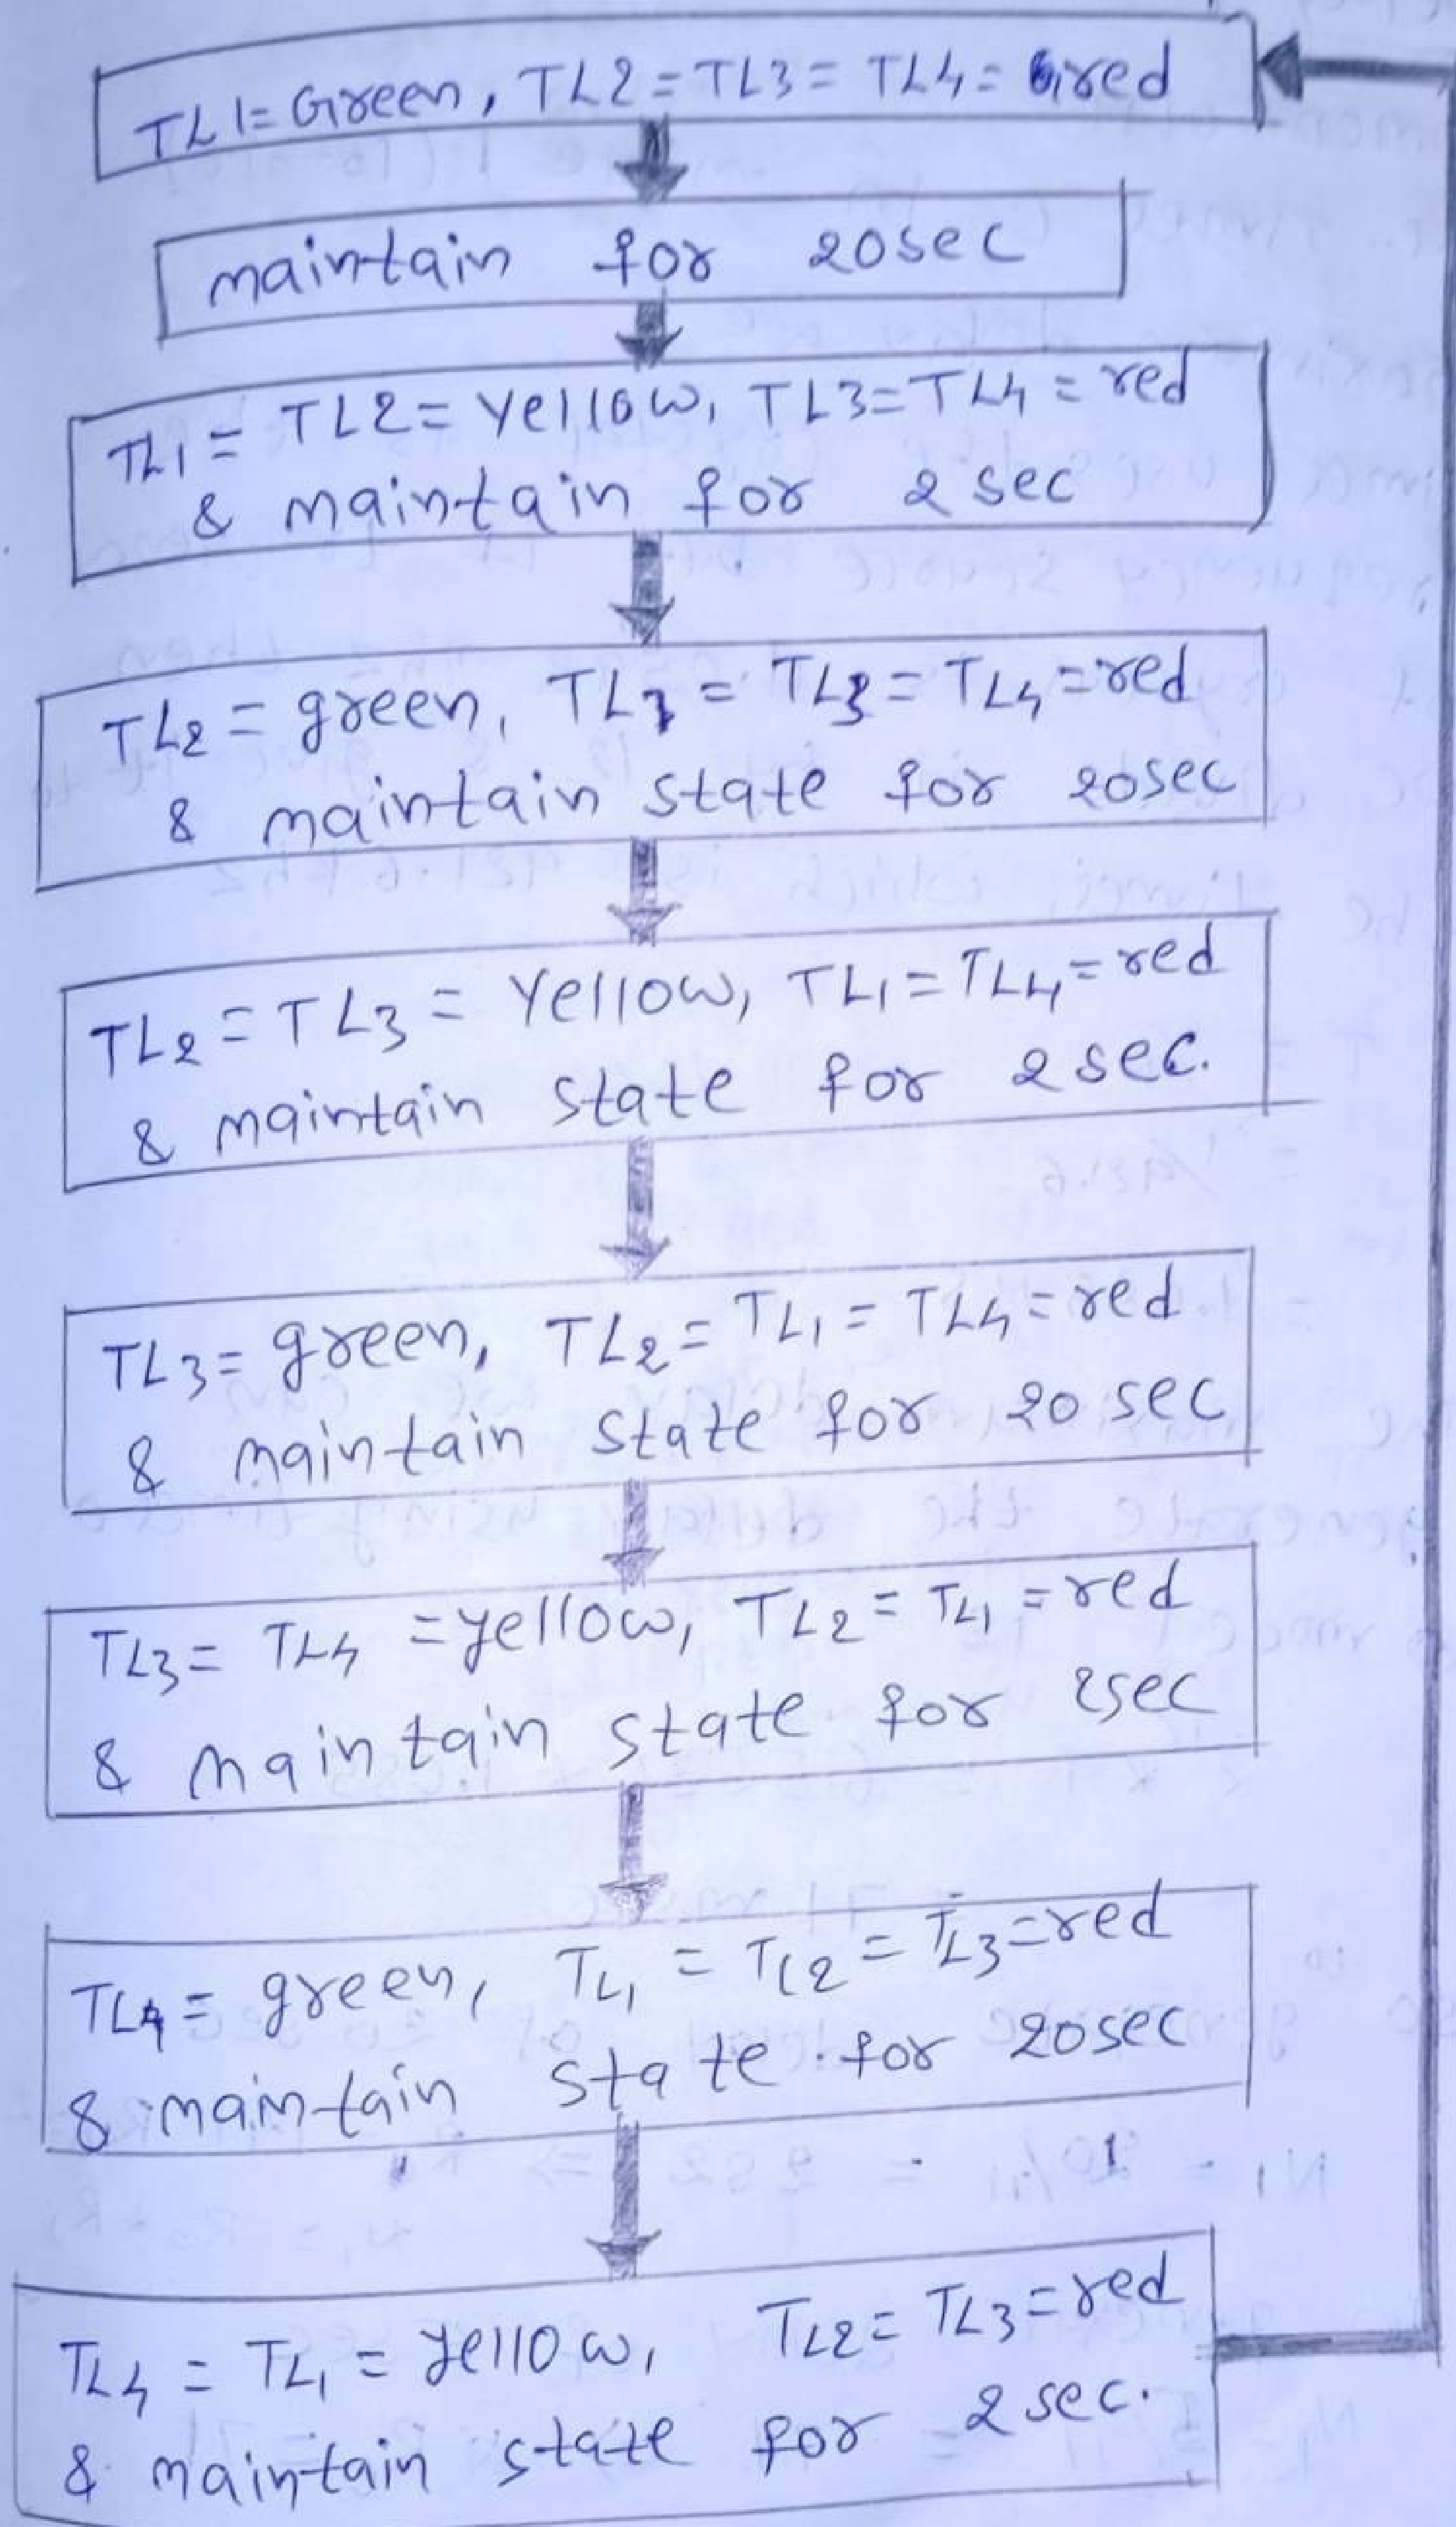 TL1= Green, TL2=TL3= TL4= red
maintain for 20sec
TL1 = TL2= Yellow, TL3=TL4 = red
& maintain for 2 sec
TL2 = green, TL1 = TL3 = TL4 =red
& maintain state for 20sec
TL2 = TL3 = Yellow, TL1 = TL4 = red
& maintain state for 2 sec.
TL3= green, TL2= TL1 = TL4 = red
& maintain state for 20 sec
TL3= TL4 =yellow, TL2= TL1 = red
& maintain state for 2sec
TL4= green, TL1 = TL2 = TL3=red
& maintain state for 20sec
TL4 = TL1 = yellow, TL2= TL3=red
& maintain state for 2 sec.